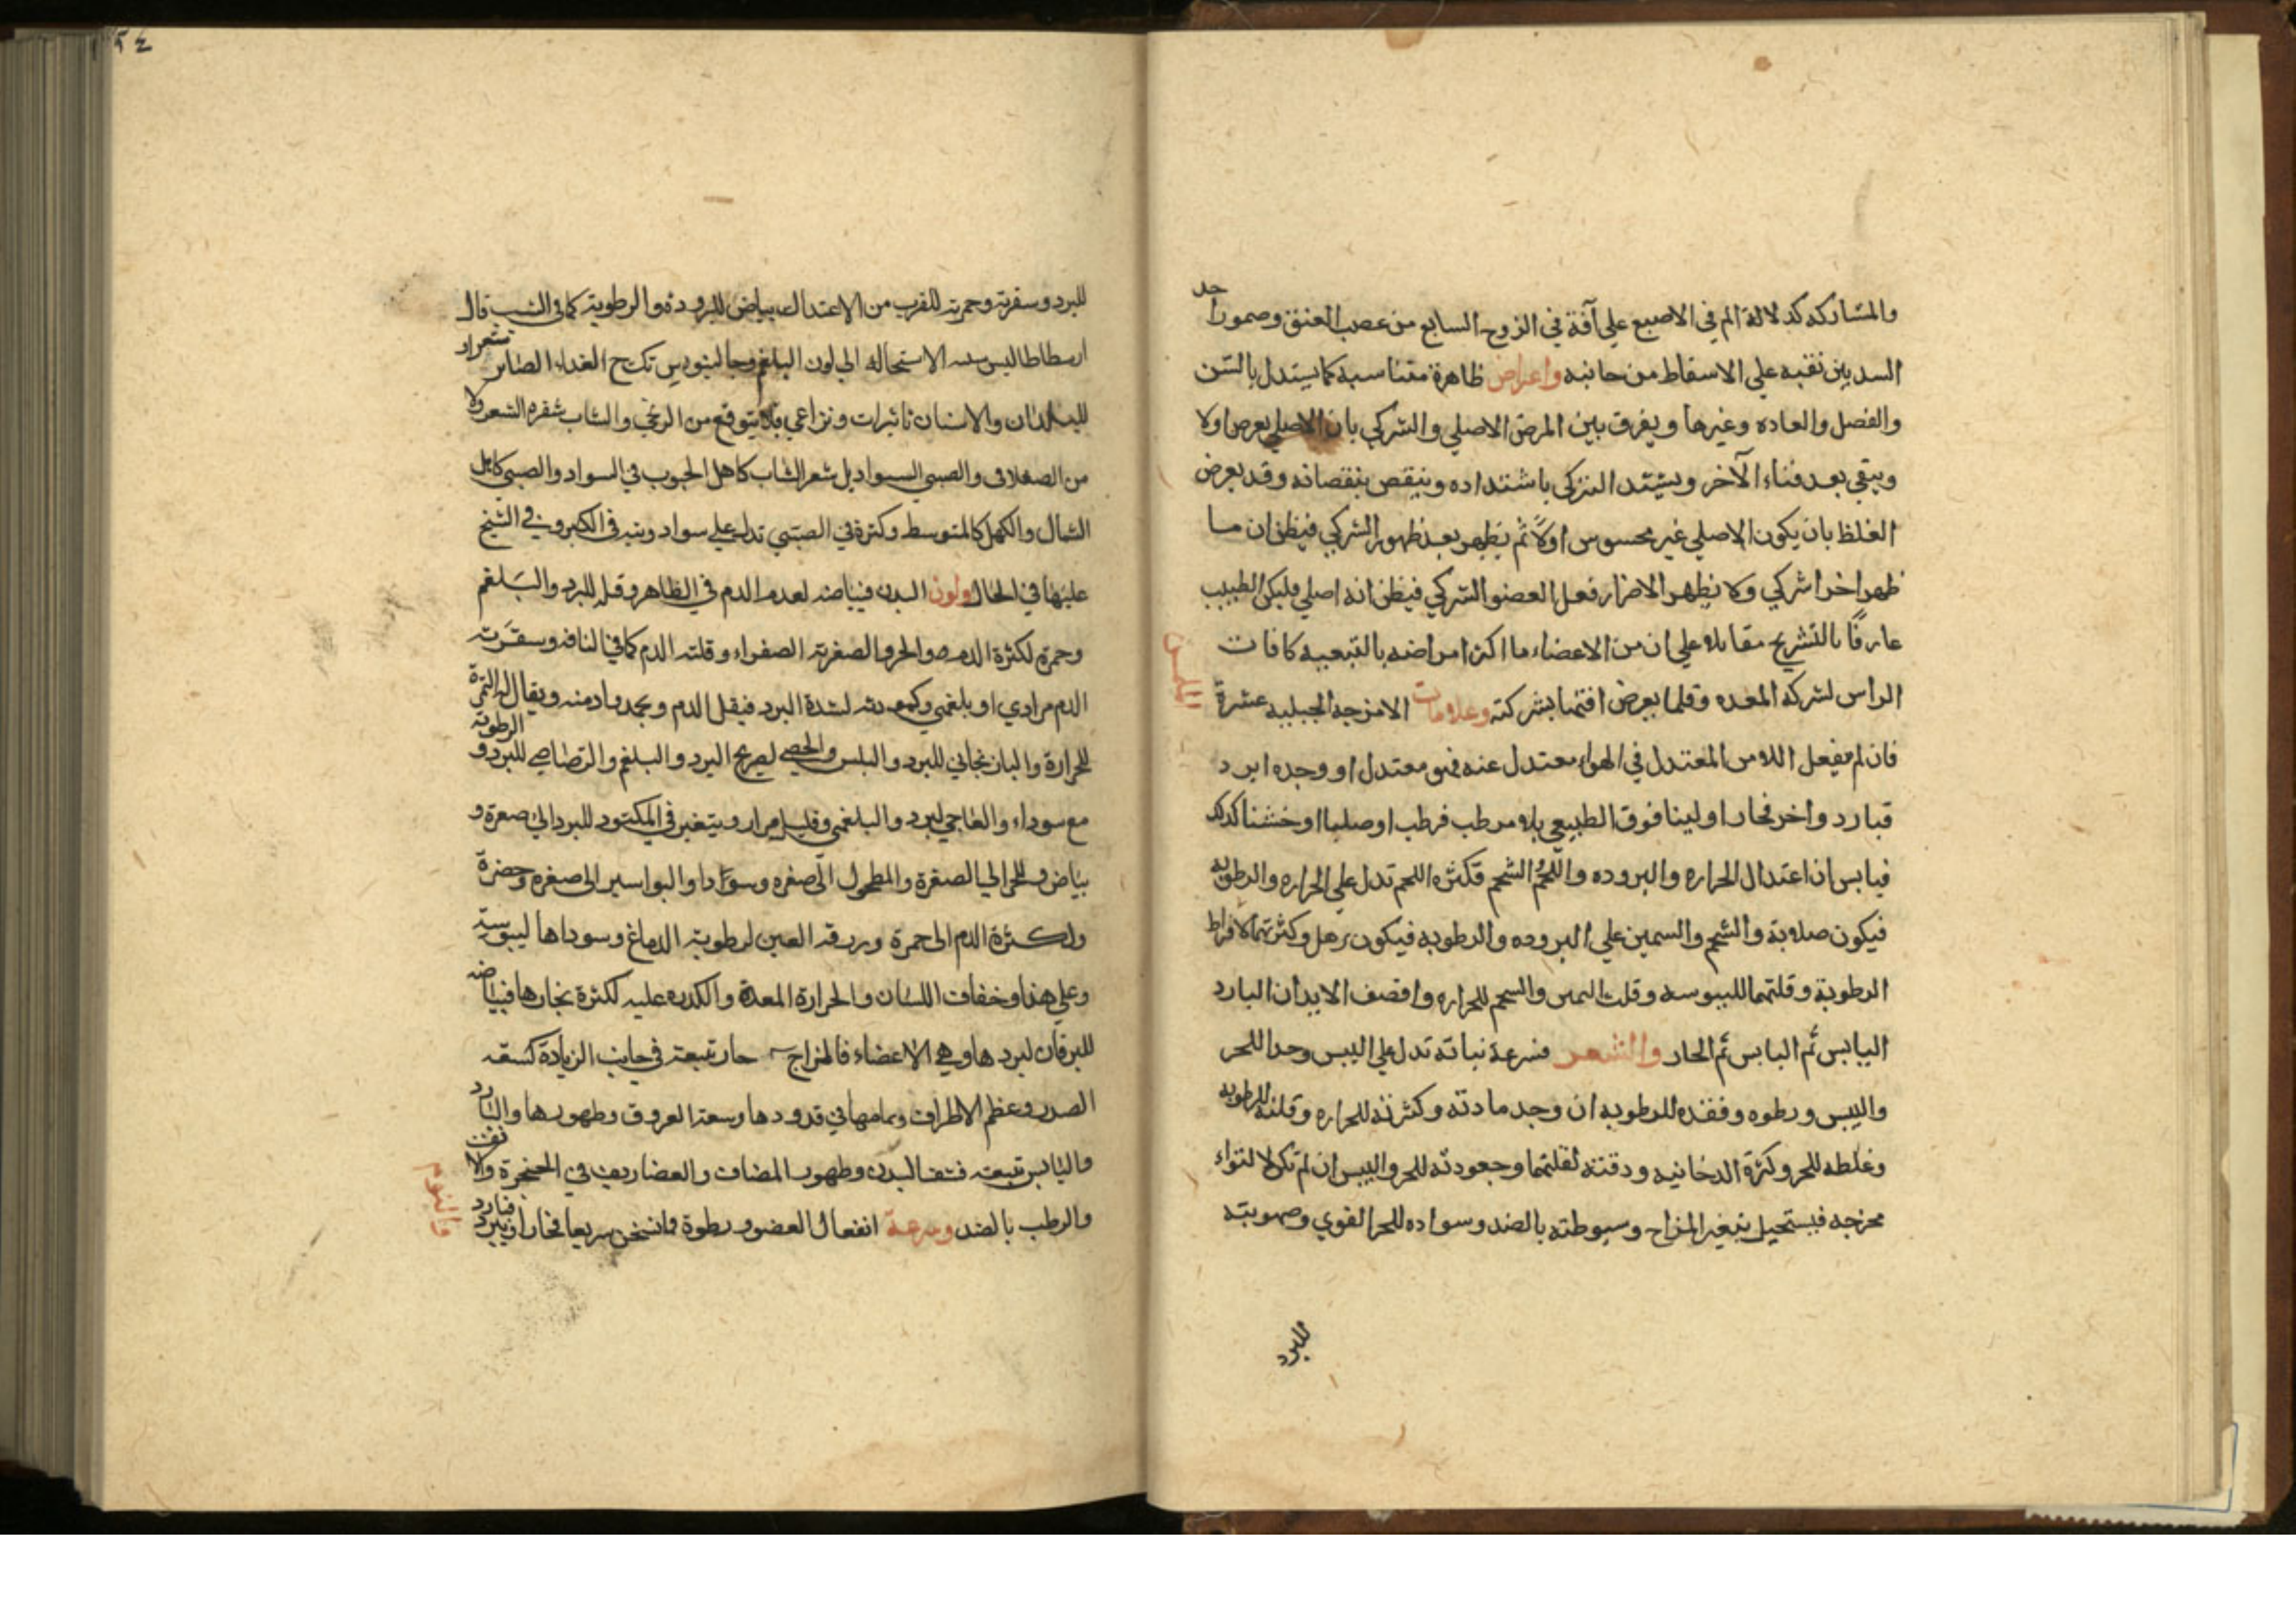 والمشاركه كدلالة الم في الاصبع علي آفة في الزوج السابع من عصب العنق وصمورا حد
السديين نقبه علي الاسقاط من جانبه واعراض ظاهرة متناسبة كما يستدل بالسن
والفصل والعاده وغيرها ويفرق بين المرض الاصلي والشركي بان الاصلي يعرض اولا
ويبقي بعد فناء الآخر ويشتد الشركي باشتداده وينقص بنقصانه وقد يعرض
الغلظ بان يكون الاصلي غير محسوس اولاً ثم يظهر بعد ظهور الشركي فيظن ان ما
ظهر اخرا شركي ولا يظهر الاضرار فعل العضو الشركي فيظن انه اصلي فليكن الطبيب
عارفًا بالتشريح مقابله علي ان من الاعضاء ما اكثر امراضه بالتبعيه كافات
الراس لشركة المعده وقلما يعرض افتها بشركته وعلامات الامزجه الجبليه عشرة
الملمس
فان لم ينفعل اللامس المعتدل في الهواء معتدل عنه فهو معتدل او وجده ابرد
فبارد واحر فحار او لينا فوق الطبيعي بلا مرطب فرطب او صلبا او خشنا كذلك
فيابس ان اعتدال الحراره والبروده واللحم الشحم فكثره اللحم تدل علي الحراره والرطوبه
فيكون صلابة والشحم والسمين علي البروده والرطوبه فيكون ترهل وكثرتهما لافراط
الرطوبة وقلتهما لليبوسه وقلت السمين والشحم للحراره واقصف الابدان البارد
اليابس ثم اليابس ثم الحار والشعر فسرعة نباته تدل علي اليبس وحدا للحر
واليبس ورطوه وفقده للرطوبه ان وجد مادته وكثرته للحراره وقلته للرطوبه
وغلظه للحر وكثرة الدخانيه ودقتنه لقلتهما وجعودته للحر واليبس ان لم تكن لالتواء
مخرجه فيستحيل بتغير المزاج وسبوطته بالضد وسواده للحر القوي وصهوبته
للبرد
٥٤
للبرد وسفرته وحمرته للقرب من الاعتدال بياض للبرودة والرطوبة كما في الشيب قال
ارسطاطاليس الاستحاله الي لون البلغم وجالينوس تكرج الغذاء الصائر شعرا و
للبلدان والاسنان تاثيرات ونراعي فلا يتوقع من الزنجي والشاب شقره الشعر ولا
من الصقلابى والصبي السواد بل شعر الشاب كاهل الجنوب في السواد والصبي كاهل
الشمال والكهل كالمتوسط وكثرة في الصبي تدل علي سواد وينه في الكبر وفي الشيخ
عليها في الحال ولون البدن فبياضه لعدم الدم في الظاهر وقله للبرد والبلغم
وحمرة لكثرة الدم والحر والصفرته الصفراء وقلته الدم كما في الناقه وسقرته
الدم مراري او بلغمي وكمودته لشدة البرد فيقل الدم ويجمد وادمنه ويقال له التمرة
للحرارة والباذنجاني للبرد واليبس والجصي لصريح البرد والبلغم والرصاصي للبرد و الرطوبة
مع سوداء والعاجي لبرد والبلغمي وقليل مرار ويتغير في المكبود للبرد الي صفرة و
بياض وللحر الي الصفرة والمطحول الي صفره وسوادا والبواسير الي صفره وخضرة
ولكثرة الدم الي حمرة وزرقة العين لرطوبة الدماغ وسودها ليبوسته
وعلي هذا وخفاف اللسان والحرارة المعدة والكدره عليه لكثرة بخارها فبياضه
لليرقان لبردها وهي الاعضاء فالمزاج حار تبعته في جانب الزيادة كسعة
الصدر وعظم الاطراف وتمامها في قدودها وسعة العروق وظهورها والبارد
واليابس تبعته قشف البدن وظهور المضاف والغضاريف في الحنجرة والانف
والرطب بالضد وسرعة انفعال العضو ورطوة فان سخن سريعا فحار او يبرد فبارد